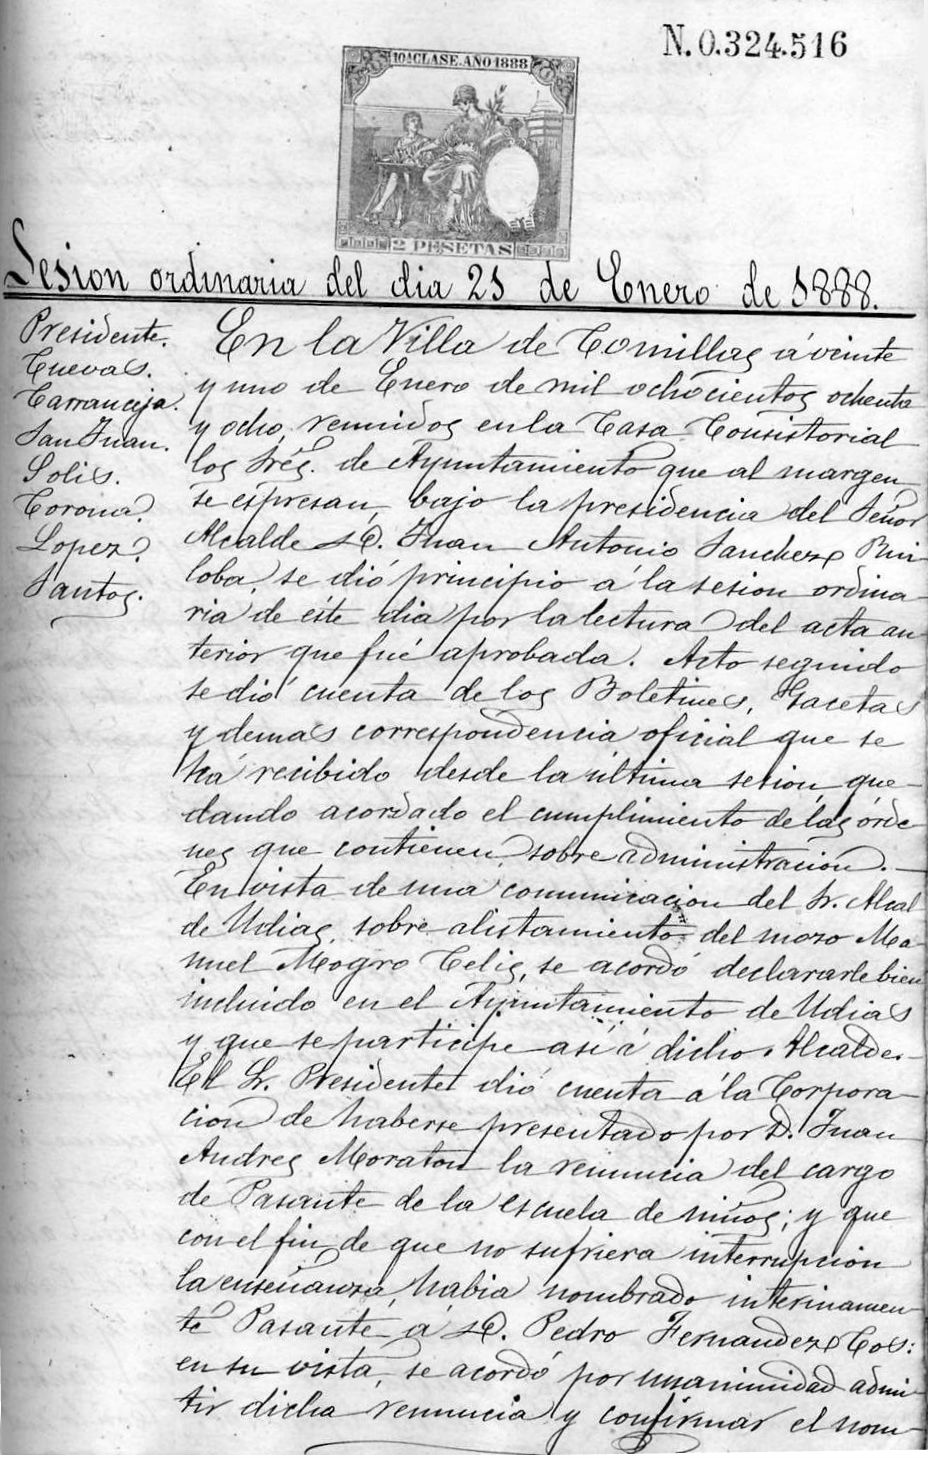 N. 0.324.516
10ª CLASE. AÑO 1888
2 PESETAS
Sesion ordinaria del dia 21 de Enero de 1888.
Presidente.
Cuevas.
Carranceja.
San Juan.
Solis.
Corona.
Lopez.
Santos.
En la Villa de Comillas á veinte
y uno de Enero de mil ochocientos ochenta
y ocho, reunidos en la Casa Consistorial
los Srés. de Ayuntamiento que al margen
se espresan, bajo la presidencia del Señor
Alcalde D. Juan Antonio Sanchez Rui
loba, se dió principio á la sesion ordina-
ria de éste dia por la lectura del acta an-
terior que fué aprobada. Acto seguido
se dió cuenta de los Boletines, Gacetas
y demas correspondencia oficial que se
há recibido desde la última sesion, que-
dando acordado el cumplimiento de las órde
nes que contienen sobre administracion.—
En vista de una comunicacion del Sr. Alcal
de Udias, sobre alistamiento del mozo Ma-
nuel Mogro Celis, se acordó declararle bien
incluido en el Ayuntamiento de Udias
y que se participe así á dicho Alcalde.—
El Sr. Presidente dió cuenta á la Corpora-
cion de haberse presentado por D. Juan
Andres Moraton la renuncia del cargo
de Pasante de la escuela de niños; y que
con el fin de que no sufriera interrupcion
la enseñanza, habia nombrado interinamen-
te Pasante á D. Pedro Fernandez Cos:
en su vista, se acordó por unanimidad admi-
tir dicha renuncia y confirmar el nom-